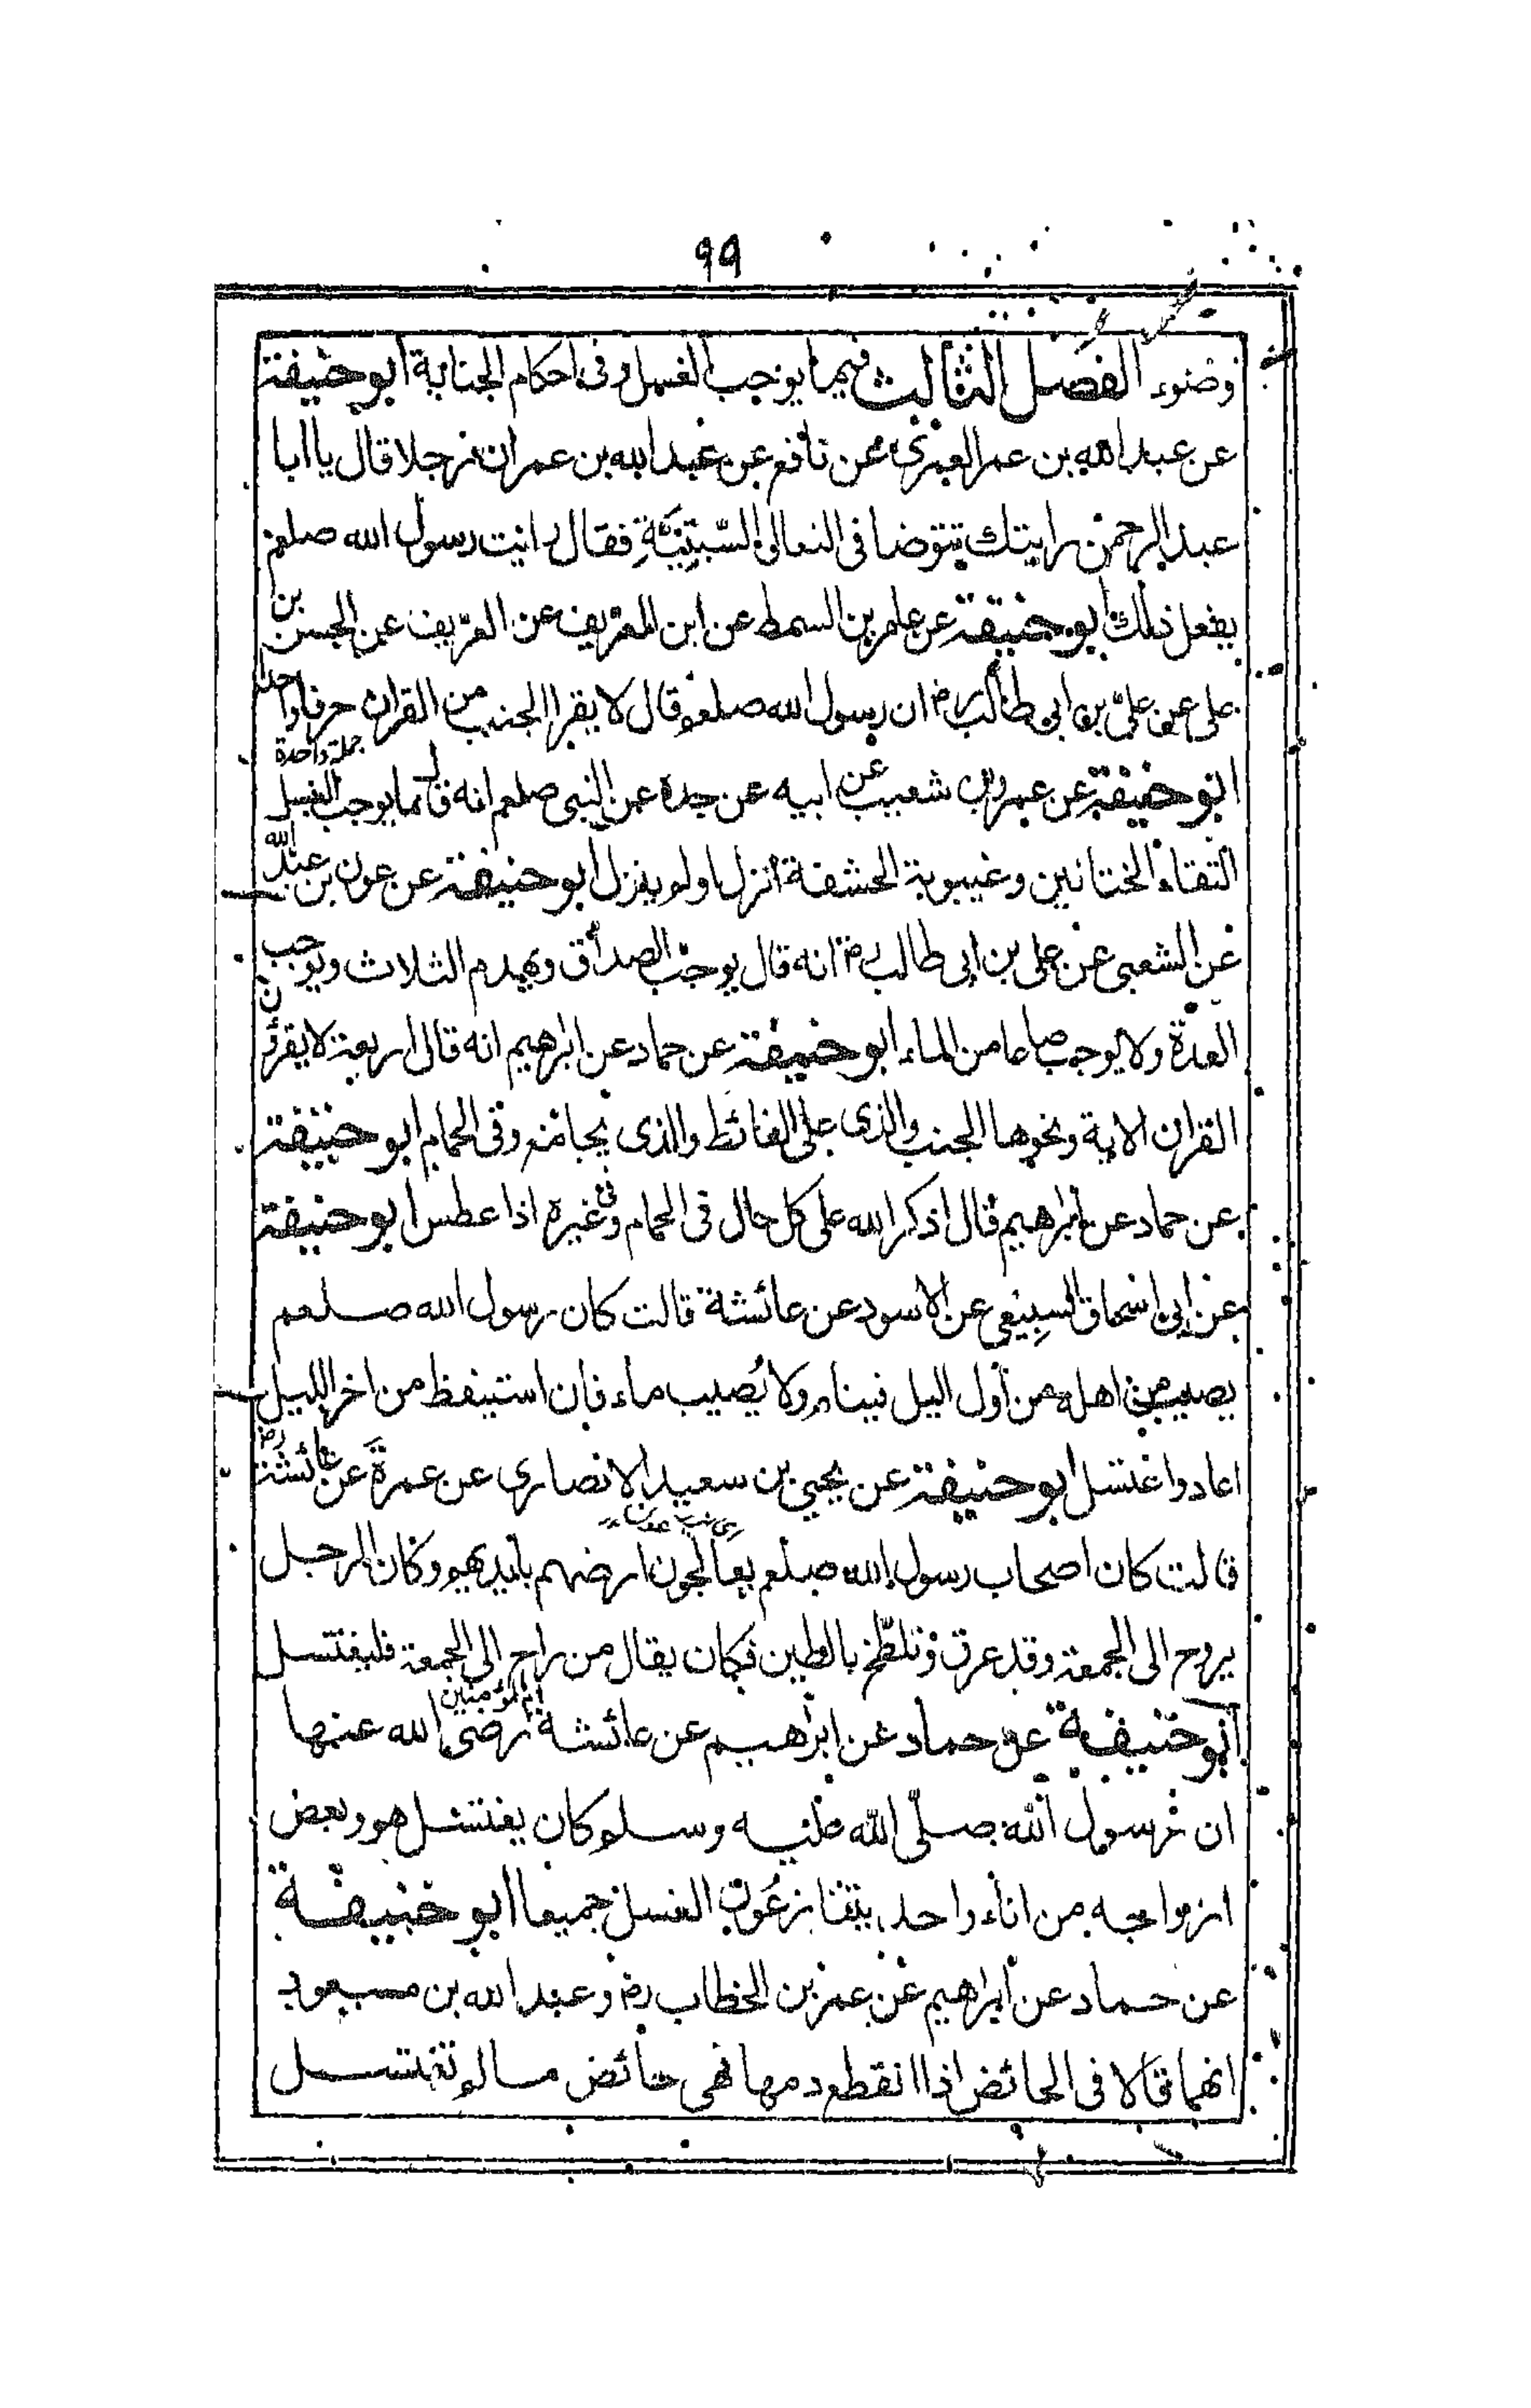 ٩٩
وضوء الفصل الثالث فيما يوجب الغسل وفى احكام الجنابة ابو حنيفة
عن عبد الله بن عمر العمرى عن نافع عن عبد الله بن عمر ان رجلا قال يا ابا
عبد الرحمن رايتك تتوضا فى النعال السبتية فقال رايت رسول الله صلعم
يفعل ذلك ابو حنيفة عن عامر بن السمط عن ابن الغريف عن الغريف عن الحسن بن
على عن على بن ابى طالب رض ان رسول الله صلعم قال لا يقرا الجنب من القران حرفا واحدا
جملة واحدة
ابو حنيفة عن عمرو بن شعيب عن ابيه عن جده عن النبى صلعم انه قال ما يوجب الغسل
التقاء الختانين وغيبوبة الحشفة انزل او لم ينزل ابو حنيفة عن عون بن عبد الله
عن الشعبى عن على بن ابى طالب رض انه قال يوجب الصداق ويهدم الثلاث ويوجب
العدة ولا يوجب صاعا من الماء ابو حنيفة عن حماد عن ابرهيم انه قال اربعة لا يقرئن
القران الاية ونحوها الجنب والذى على الغائط والذى يجامع وفى الحمام ابو حنيفة
عن حماد عن ابرهيم قال اذكر الله على كل حال فى الحمام وفى غيره اذا عطس ابو حنيفة
عن ابى اسحاق السبيعى عن الاسود عن عائشة قالت كان رسول الله صلعم
يصيب من اهله من اول اليل فينام ولا يُصيب ماء فان استيقظ من اخر الليل
اعاد واغتسل ابو حنيفة عن يحيى بن سعيد الانصارى عن عمرةَ عن عائشة رض
قالت كان اصحاب رسول الله صلعم يعالجون ارضهم بايديهم وكان الرجل
يروح الى الجمعة وقد عرق وتلطّخ بالطين فكان يقال من راح الى الجمعة فليغتسل
ابو حنيفة عن حماد عن ابرهيم عن عائشة ام المؤمنين رضى الله عنها
ان رسول الله صلّى الله عليه وسلم كان يغتسل هو وبعض
ازواجه من اناء واحد يتنازعُون الغسل جميعا ابو حنيفة
عن حماد عن ابراهيم عن عمر بن الخطاب رض وعبد الله بن مسعود
انهما قالا فى الحائض اذا انقطع دمها فهى حائض مالم تغتسل